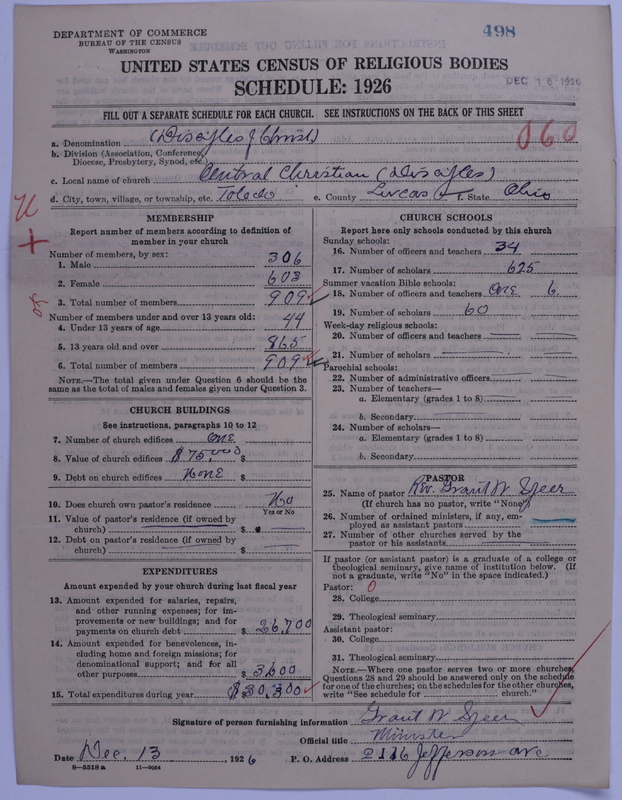 DEPARTMENT OF COMMERCE
BUREAU OF THE CENSUS
WASHINGTON
498
UNITED STATES CENSUS OF RELIGIOUS BODIES
SCHEDULE: 1926
DEC 16 1926
FILL OUT A SEPARATE SCHEDULE FOR EACH CHURCH. SEE INSTRUCTIONS ON THE BACK OF THIS SHEET
a. Denomination (Disciples of Christ) 060
b. Division (Association, Conference, Diocese, Presbytery, Synod, etc.)
c. Local name of church Central Christian (Disciples)
d. City, town, village, or township, etc. Toledo e. County Lucas f. State Ohio
MEMBERSHIP
Report number of members according to definition of
member in your church
Number of members, by sex:
1. Male 306
2. Female 603
3. Total number of members 909
Number of members under and over 13 years old:
4. Under 13 years of age 44
5. 13 years old and over 865
6. Total number of members 909
NOTE.—The total given under Question 6 should be the
same as the total of males and females given under Question 3.
CHURCH BUILDINGS
See instructions, paragraphs 10 to 12
7. Number of church edifices One
8. Value of church edifices $75,000 $
9. Debt on church edifices None $
10. Does church own pastor's residence No
Yes or No
11. Value of pastor's residence (if owned by
church) $
12. Debt on pastor's residence (if owned by
church) $
EXPENDITURES
Amount expended by your church during last fiscal year
13. Amount expended for salaries, repairs,
and other running expenses; for im-
provements or new buildings; and for
payments on church debt $ 26,700
14. Amount expended for benevolences, in-
cluding home and foreign missions; for
denominational support; and for all
other purposes $ 3600
15. Total expenditures during year $30,300
CHURCH SCHOOLS
Report here only schools conducted by this church
Sunday schools:
16. Number of officers and teachers 34
17. Number of scholars 625
Summer vacation Bible schools:
18. Number of officers and teachers One 6
19. Number of scholars 60
Week-day religious schools:
20. Number of officers and teachers
21. Number of scholars
Parochial schools:
22. Number of administrative officers
23. Number of teachers—
a. Elementary (grades 1 to 8)
b. Secondary
24. Number of scholars—
a. Elementary (grades 1 to 8)
b. Secondary
PASTOR
25. Name of pastor Rev. Grant W Speer
(If church has no pastor, write "None")
26. Number of ordained ministers, if any, em-
ployed as assistant pastors
27. Number of other churches served by the
pastor or his assistants
If pastor (or assistant pastor) is a graduate of a college or
theological seminary, give name of institution below. (If
not a graduate, write "No" in the space indicated.)
Pastor: 0
28. College
29. Theological seminary
Assistant pastor:
30. College
31. Theological seminary
NOTE.—Where one pastor serves two or more churches,
Questions 28 and 29 should be answered only on the schedule
for one of the churches; on the schedules for the other churches,
write "See schedule for church."
Signature of person furnishing information Grant W Speer
Official title Minister
Date Dec. 13, 1926 P. O. Address 2116 Jefferson ave
8—5518a 11—9054